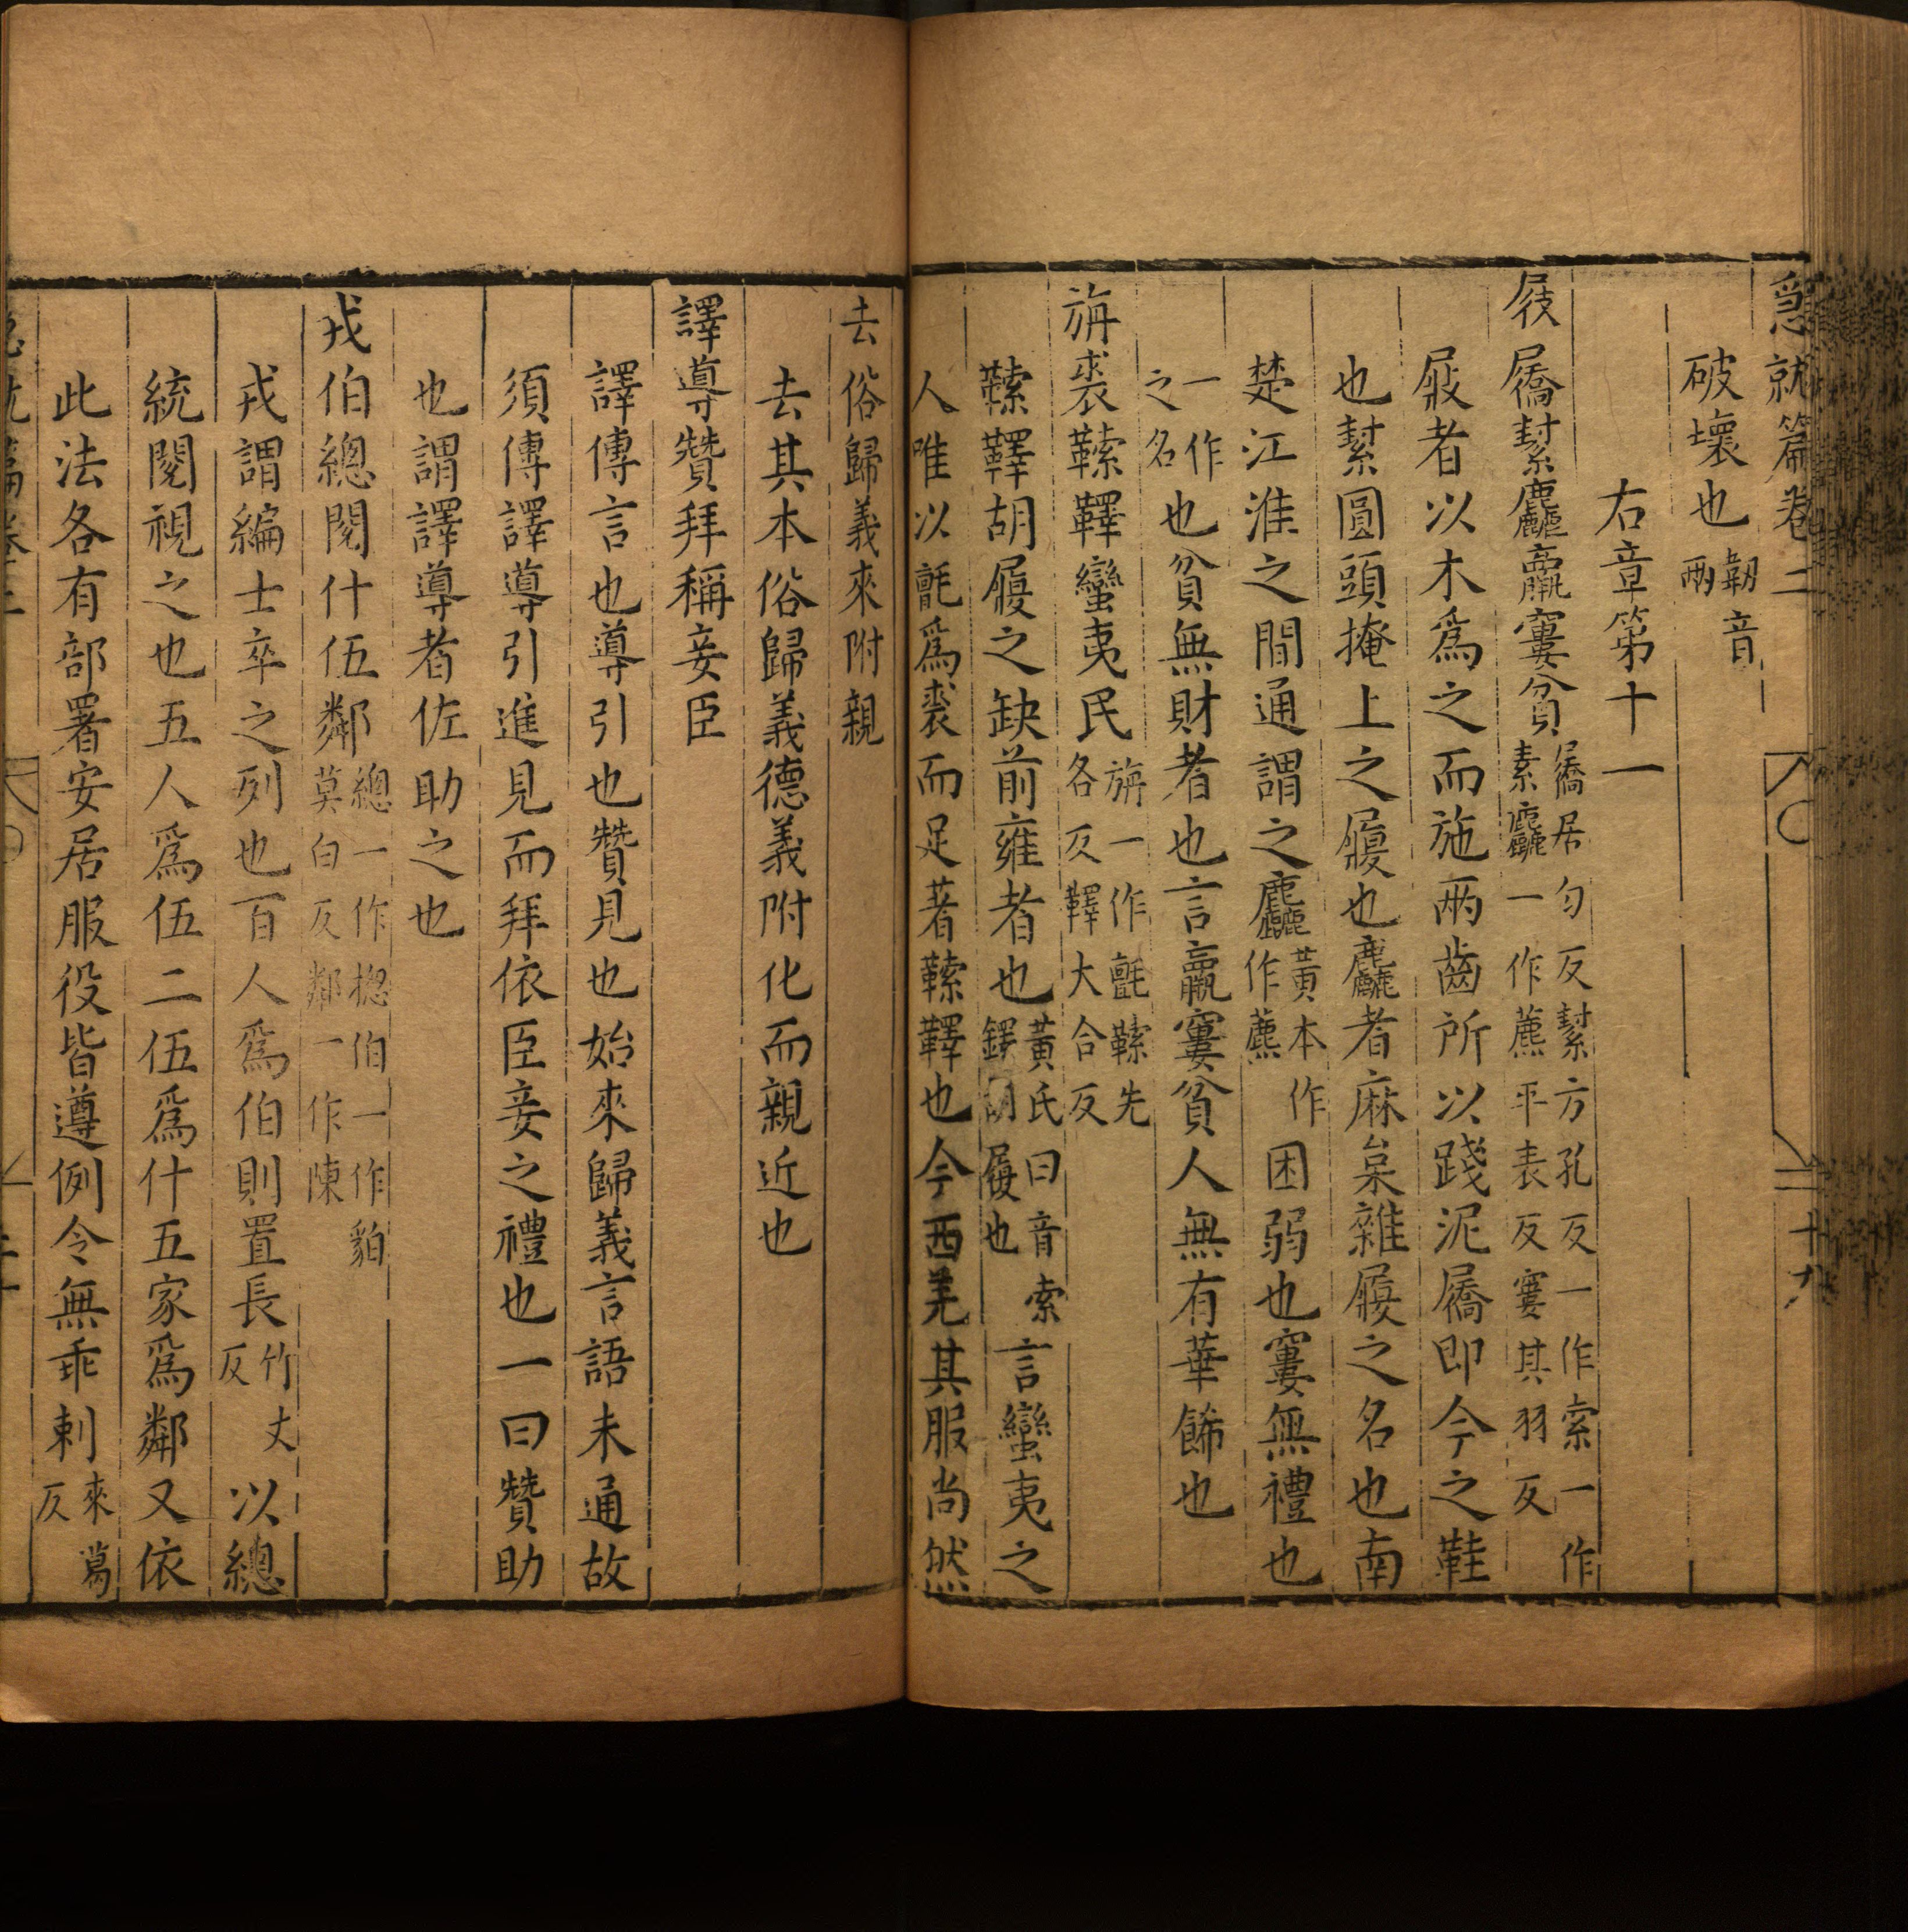 急就篇卷二 十九
破壞也韌音兩
右章第十一
屐屩䋽麤羸窶貧屩居勺反䋽方孔反一作索一作素麤一作藨平表反窶其羽反
屐者以木爲之而施兩齒所以踐泥屩即今之鞋
也䋽圓頭掩上之履也麤者麻枲雜履之名也南
楚江淮之間通謂之麤黃本作作藨困弱也窶無禮也
一作之名也貧無財者也言羸窶貧人無有華餙也
旃裘䩡鞮蠻夷民旃一作氈䩡先各反鞮大合反
䩡鞮胡履之缺前雍者也黃氏曰音索胡履也言蠻夷之
人唯以氈爲裘而足著䩡鞮也今西羌其服尚然
去俗歸義來附親
去其本俗歸義德義附化而親近也
譯導贊拜稱妾臣
譯傳言也導引也贊見也始來歸義言語未通故
須傳譯導引進見而拜依臣妾之禮也一曰贊助
也謂譯導者佐助之也
戎伯總閱什伍鄰總一作揔伯一作貊莫白反鄰一作陳
戎謂編士卒之列也百人爲伯則置長竹丈反以總
統閱視之也五人爲伍二伍爲什五家爲鄰又依
此法各有部署安居服役皆遵例令無乖剌來葛反